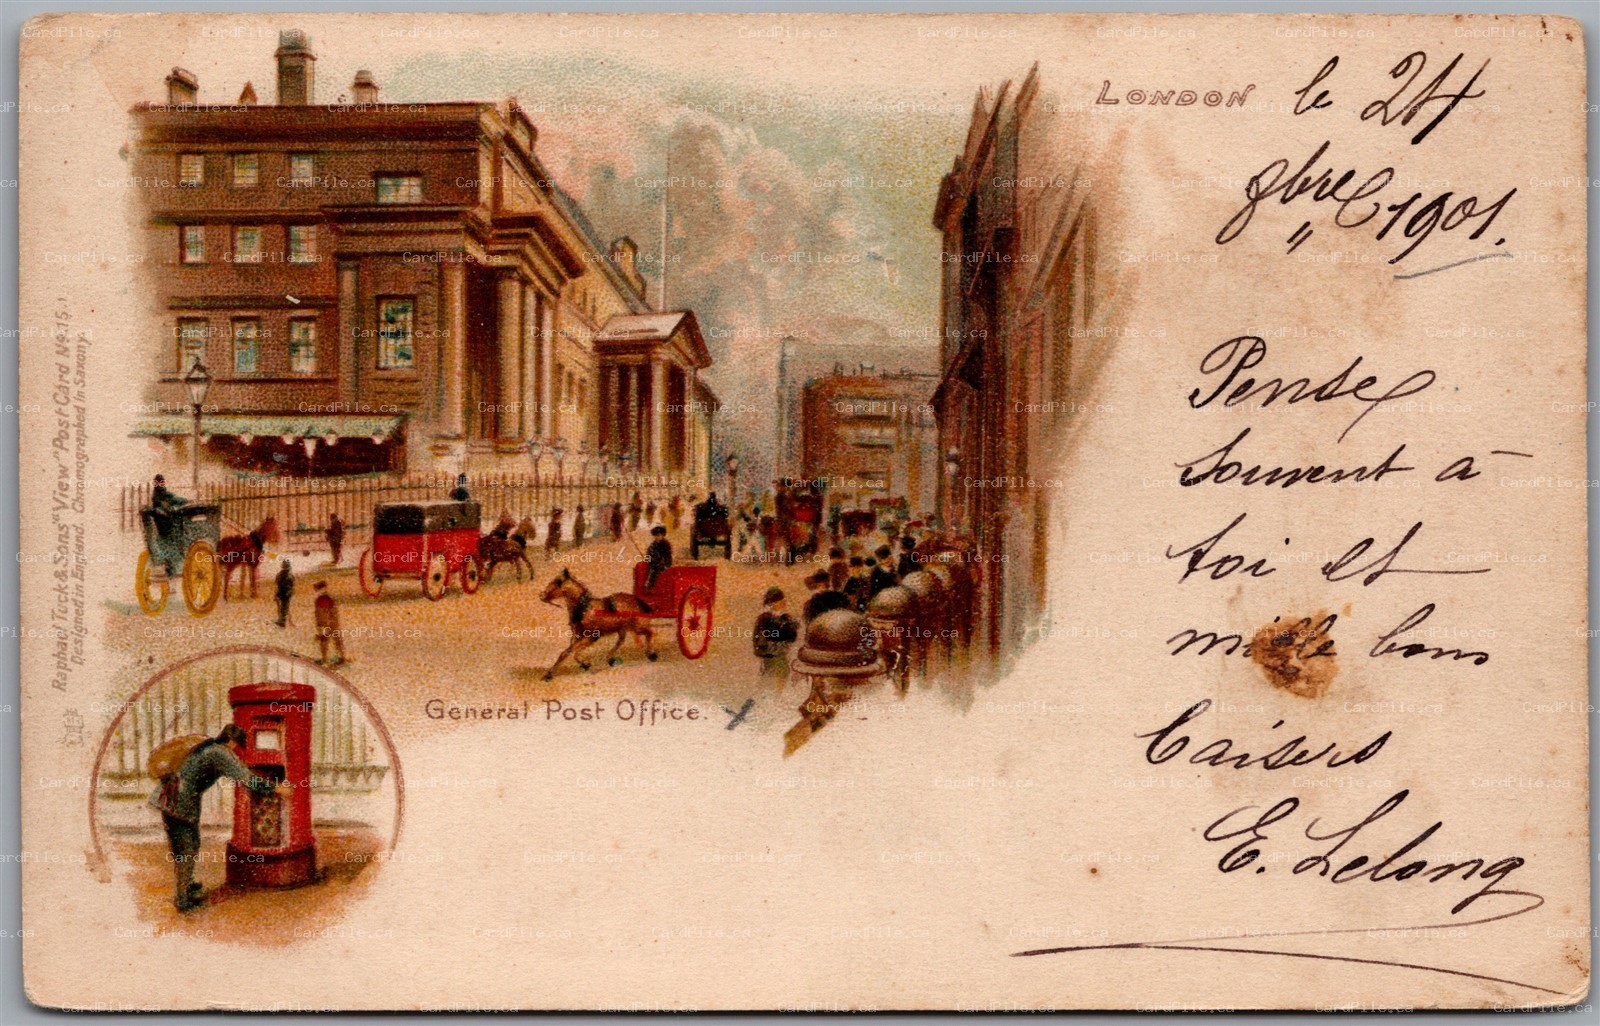 LONDON le 24
9bre 1901.
Pense
souvent à
toi et
mille bons
baisers
E. Lelong
General Post Office.
Raphael Tuck & Sons "View" Post Card No. 15.
Designed in England. Chromographed in Saxony.
CardPile.ca